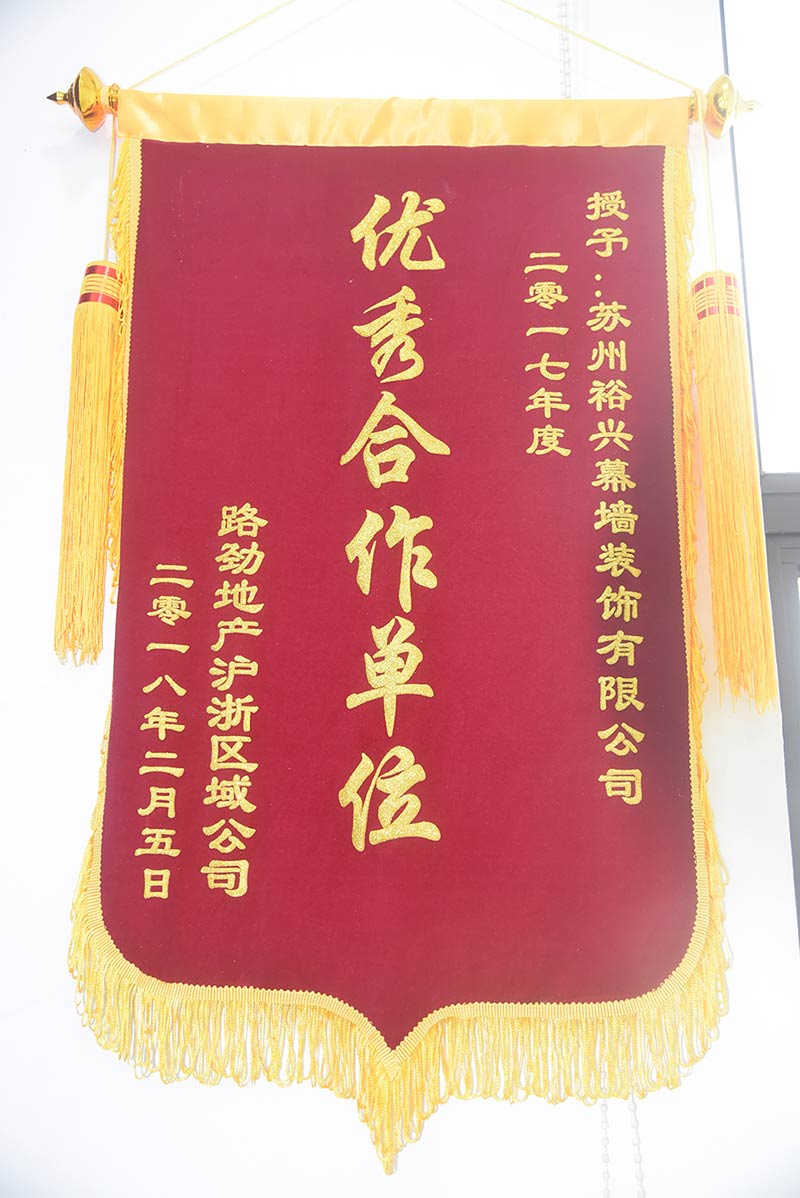 授予:苏州裕兴幕墙装饰有限公司
二零一七年度
优秀合作单位
路劲地产沪浙区域公司
二零一八年二月五日